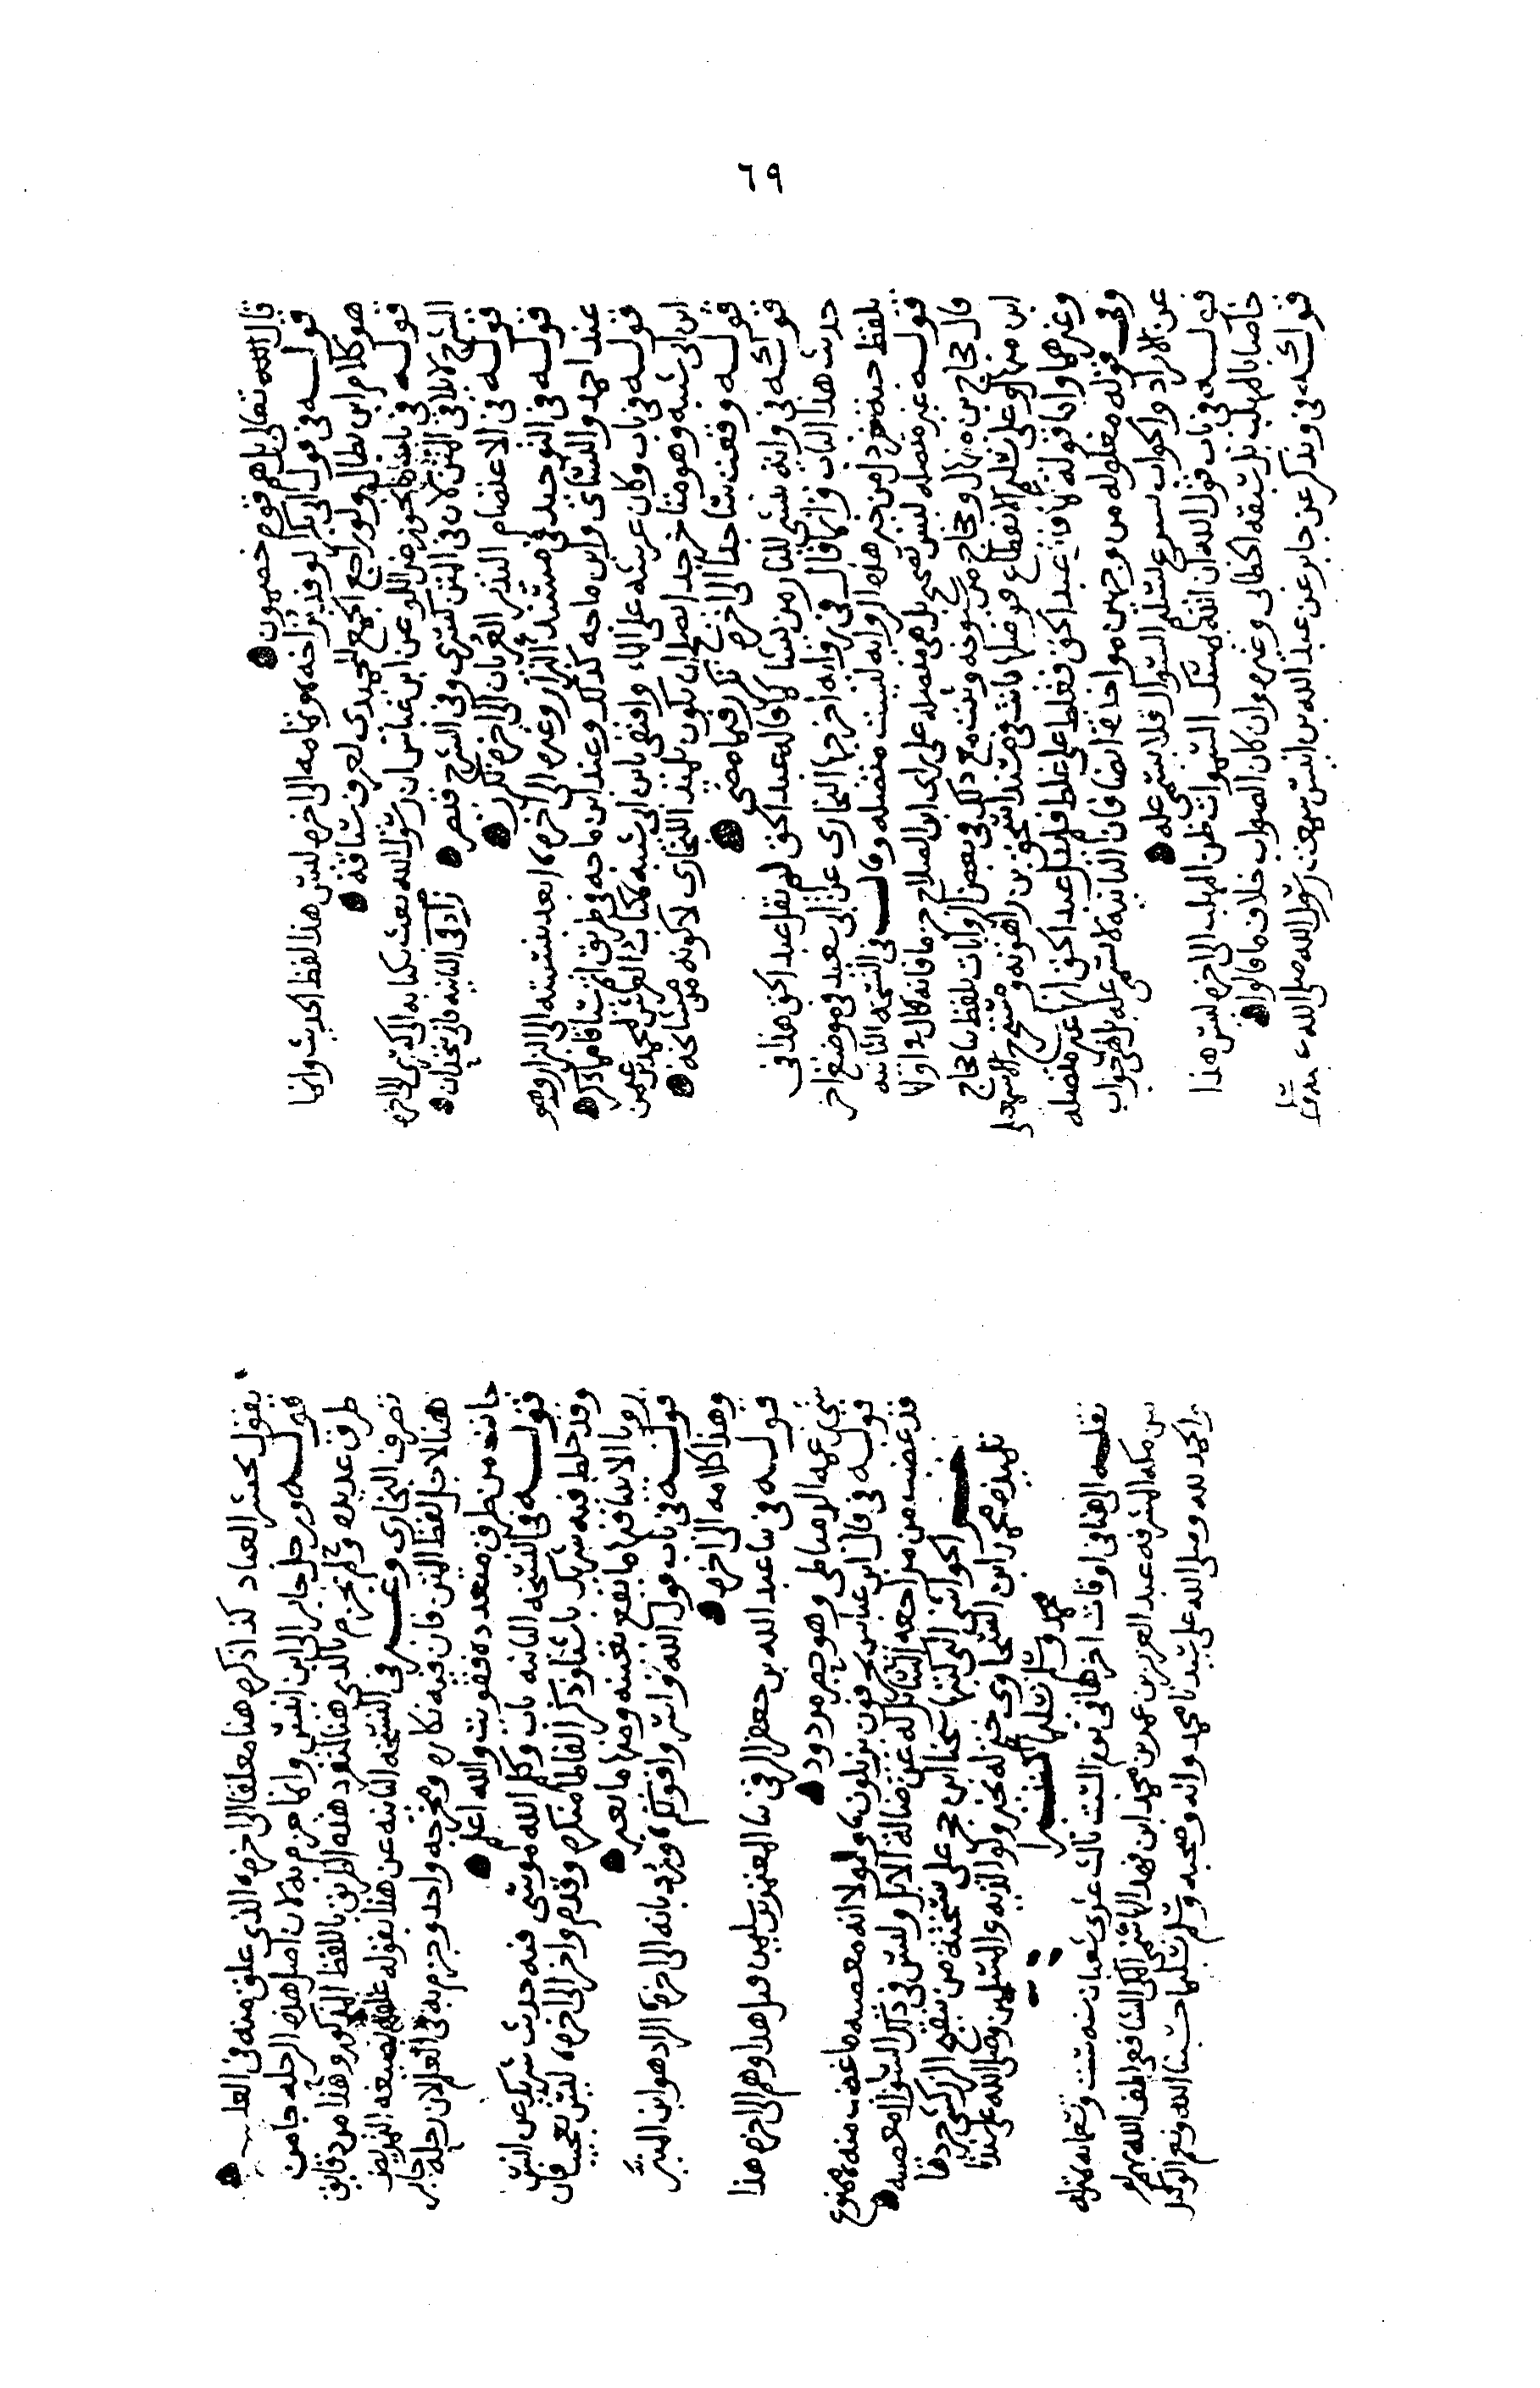 ٦٩
قال الله تعالى بل هم قوم خصمون
قوله في قول ابي بكر لوفد بزاخة وتمامه الى اخره ليس هذا لفظ الحديث وانما
هو كلام ابن بطال ولو راجع الجمع للحميدي لعرف سياقه
قوله في باب ما يجوز من اللو عن ابن عباس ان رسول الله بعث بكتابه الى كسرى الى اخره
الشرح لابلاقي المتن لان في المتن كسرى وفي الشرح قيصر زاد في الثانية فاتى بخدان
قوله في الاعتصام النذير العريان الى اخره تكرر
قوله في التوحيد في مسند البزار وغيره الى اخره بعد نسبته الى البزار وهو
عند احمد والنسائي وابن ماجه كذلك وعند ابن ماجه في طريق اتم سياقا مما ذكره
قوله في باب وكان عرشه على الماء وافقني ابن ابي شيبة في كتاب العرش لمحمد بن عثمن
ابن ابي شيبة وهو متاخر جدا يصلح ان يكون تلميذ البخاري لا كونه من مشايخه
قوله وقعت ساجدا الى اخره تكرر فيما مضى
قوله في وانه ينشئ للنار من يشا كما قاله عبد الحق لم يقل عبد الحق هذا في
حديث هذا الباب وانما قال في رواية اخرجها البخاري عن ابي سعيد في موضع اخر
بلفظ حبة خردل من خير هذه الرواية ليست متصلة وقال في النسخة الثانية
قوله غير متصلة ليس بصحيح بل هي متصلة على راى ابن الصلاح جزما فانه قال اولا
قال حجاج بن منهال وحجاج من شيوخه وثبت مع ذلك في بعض الروايات بلفظ حدثنا حجاج
ابن منهال وعلى تسليم الانقطاع فوصلها ثابت في مسند اسحق بن راهويه ومستخرج الاسمعيلي
وغيرهما واما قوله كافة عبد الحق فغلط على غلط فلم يقل عبد الحق انها غير متصلة
وفي قوله مغلوله من وجهين مواخاة ايضا فان الثانية لا تسمى علة بل هي جواب
عن الايراد والجواب يسرع لتسليم السؤال فلا يسمى علة
قوله في باب قول الله ان الله يمسك السموات ظن المهلب الى اخره ليس هذا
خاصا بالمهلب بل سبقه الخطابي وغيره وان كان الصواب خلاف ما قالوا
قوله في ويذكر عن جابر عن عبد الله بن انيس سمعت رسول الله صلى الله عليه وسلم
يقول يحشر العباد كذا ذكره هنا معلقا الى اخره الذي علق منه في العلم
قوله ورحل جابر الى ابن انيس وانما جزم به لان اصل هذه الرحلة جا من
طرق عديدة ولم يجزم بالذي هنا لتفرد هذه الطريق باللفظ المذكور وهذا من دقايق
تصرف البخاري وعبر في النسخة الثانية عن هذا بقوله علقه بصيغة التمريض
هنا لاجل لفظ المتن فان فيه نكارة ومخرجه واحد وجزم به في العلم لان رحلة جابر
جات من طرق متعددة فقويت والله اعلم
قوله في النسخة الثانية باب وكلم الله موسى فيه حديث شريك عن انس
وقد خلط فيه شريك باسناد وذكر الفاظا منكرة وقدم واخر الى اخره ليس بعجيب فان
رويا الانبيا منها ما يقع بعينه ومنها ما يعبر
قوله في باب قول الله واسروا قولكم ورد بانه الى اخره الراد هو ابن المنير
وهذا كلامه الى اخره
قوله في ثنا عبد الله بن جعفر الرقي ثنا المعتمر بن سليمن قيل هذا وهم الى اخره هذا
شيء زعمه الدمياطي وهو جير مردود
قوله في قال ابن عباس يحرفون يزيلون ولولا انه معصية ما غضب منه ممنوع
قد غضب من مراجعة السائل له عن ضالة الابل وليس في ذلك السؤال معصية
اخر الحواشي التي كتبها شيخنا ابن حجر على نسخته من تنقيح الزركشي جردها
تلميذه محمد ابن السخاوي ختم له بخير ولوالديه والمسلمين وصلى الله على سيدنا
محمد وسلم تسليما كثيرا
نقله الهنا في اوقات اخرها في يوم السبت ثالث عشرى شعبان سنة ست وتسعمايه بمنزله
من مكة المشرفة عبد العزيز بن عمر بن محمد ابن فهد الهاشمي المكي الشافعي لطف الله بهم
والحمد لله وصلى الله على سيدنا محمد واله وصحبه وسلم تسليما حسبنا الله ونعم الوكيل